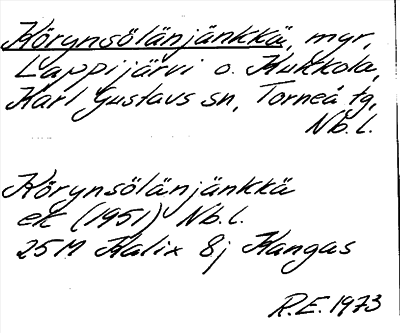 Körynsölänjänkkä, myr,
Lappijärvi o. Kukkola,
Karl Gustavs sn, Torneå tg,
Nb. l.
Körynsölänjänkkä
ek (1951) Nb. l.
25M Kalix 8j Kangas
R.E. 1973